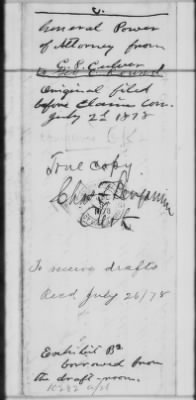 General Power
of Attorney from
G. S. Culver
to Geo. C. Round
Original filed
before Claim Com.
July 2d 1878
True copy
Chas F Benjamin
Clerk
To mercy drafts
Recd July 26/78
Exhibit B2
borrowed from
the draft-room.